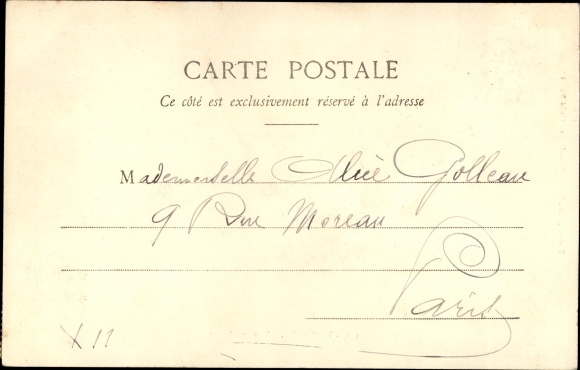 CARTE POSTALE
Ce côté est exclusivement réservé à l'adresse
Mademoiselle Alice Golleau
9 Rue Moreau
Paris
X 11